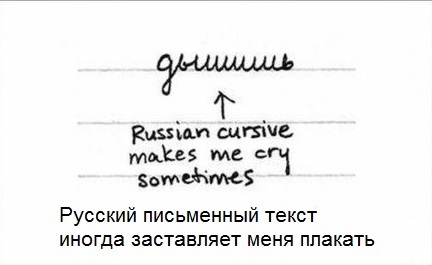 дышишь
Russian cursive
makes me cry
sometimes
Русский письменный текст
иногда заставляет меня плакать